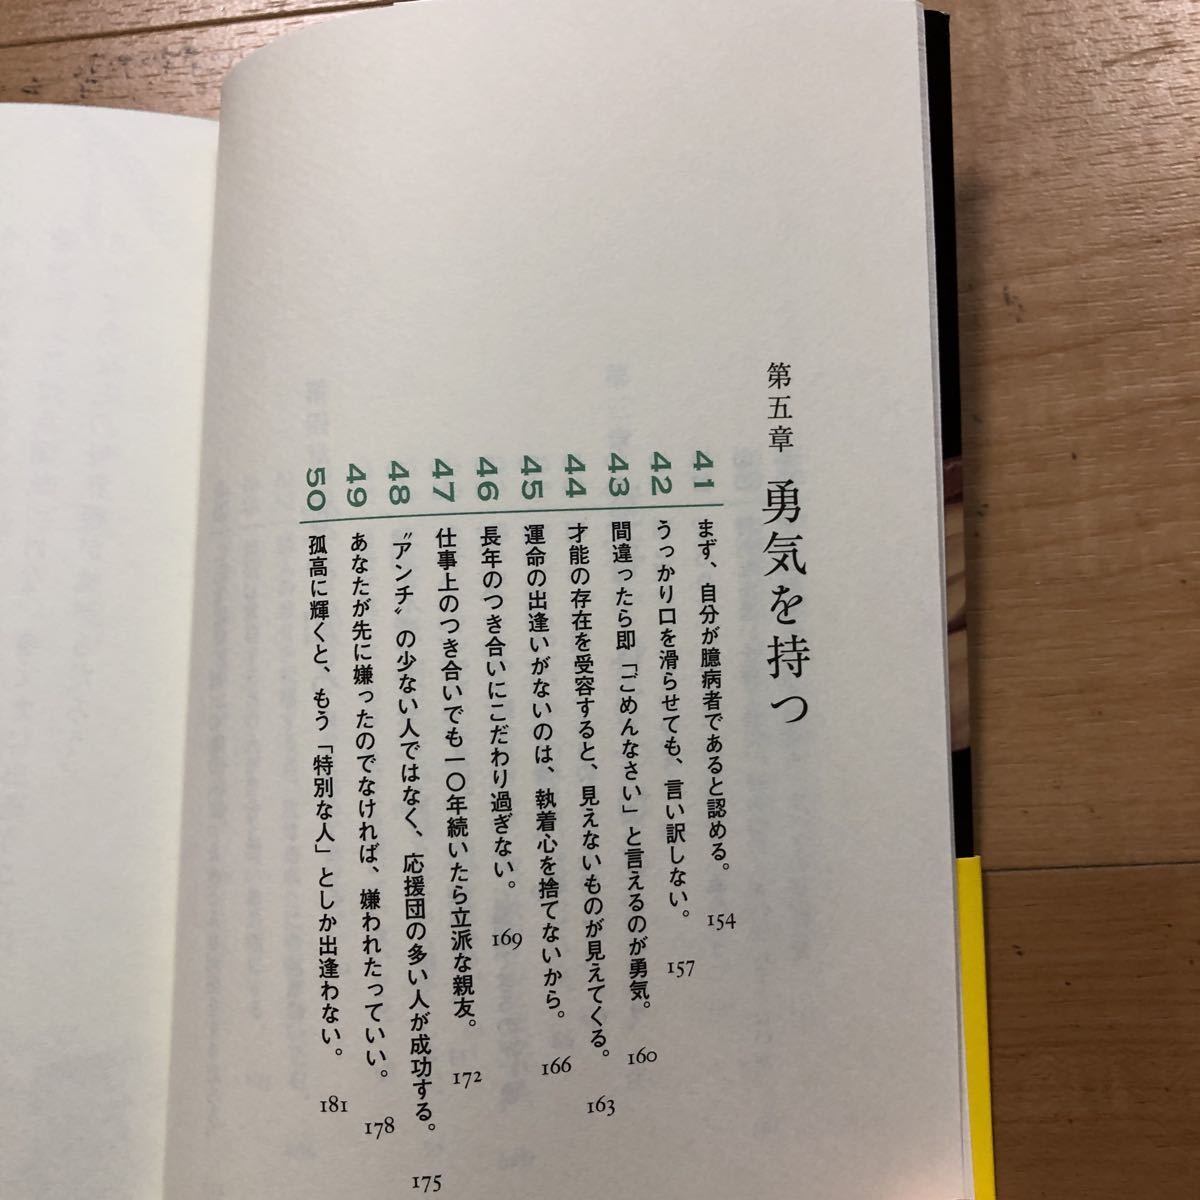 第五章 勇気を持つ
41 まず、自分が臆病者であると認める。 154
42 うっかり口を滑らせても、言い訳しない。 157
43 間違ったら即「ごめんなさい」と言えるのが勇気。 160
44 才能の存在を受容すると、見えないものが見えてくる。 163
45 運命の出逢いがないのは、執着心を捨てないから。 166
46 長年のつき合いにこだわり過ぎない。 169
47 仕事上のつき合いでも一〇年続いたら立派な親友。 172
48 〝アンチ〟の少ない人ではなく、応援団の多い人が成功する。 175
49 あなたが先に嫌ったのでなければ、嫌われたっていい。 178
50 孤高に輝くと、もう「特別な人」としか出逢わない。 181